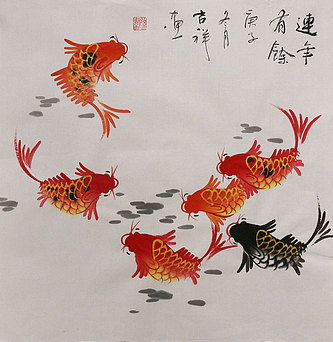 連年
有餘
庚子
冬月
吉祥
画